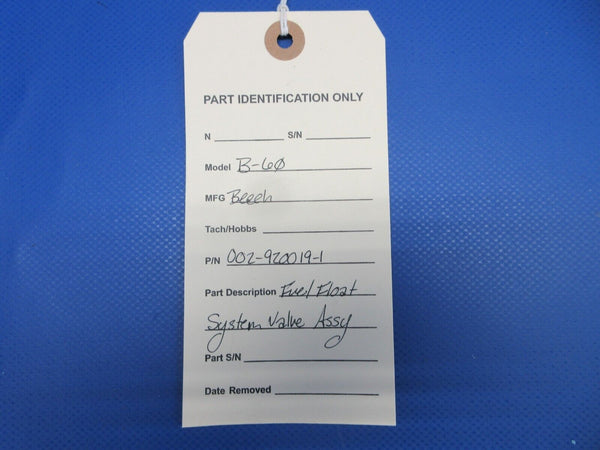 PART IDENTIFICATION ONLY
N S/N
Model B-60
MFG Beech
Tach/Hobbs
P/N 002-920019-1
Part Description Fuel Float
System Valve Assy
Part S/N
Date Removed